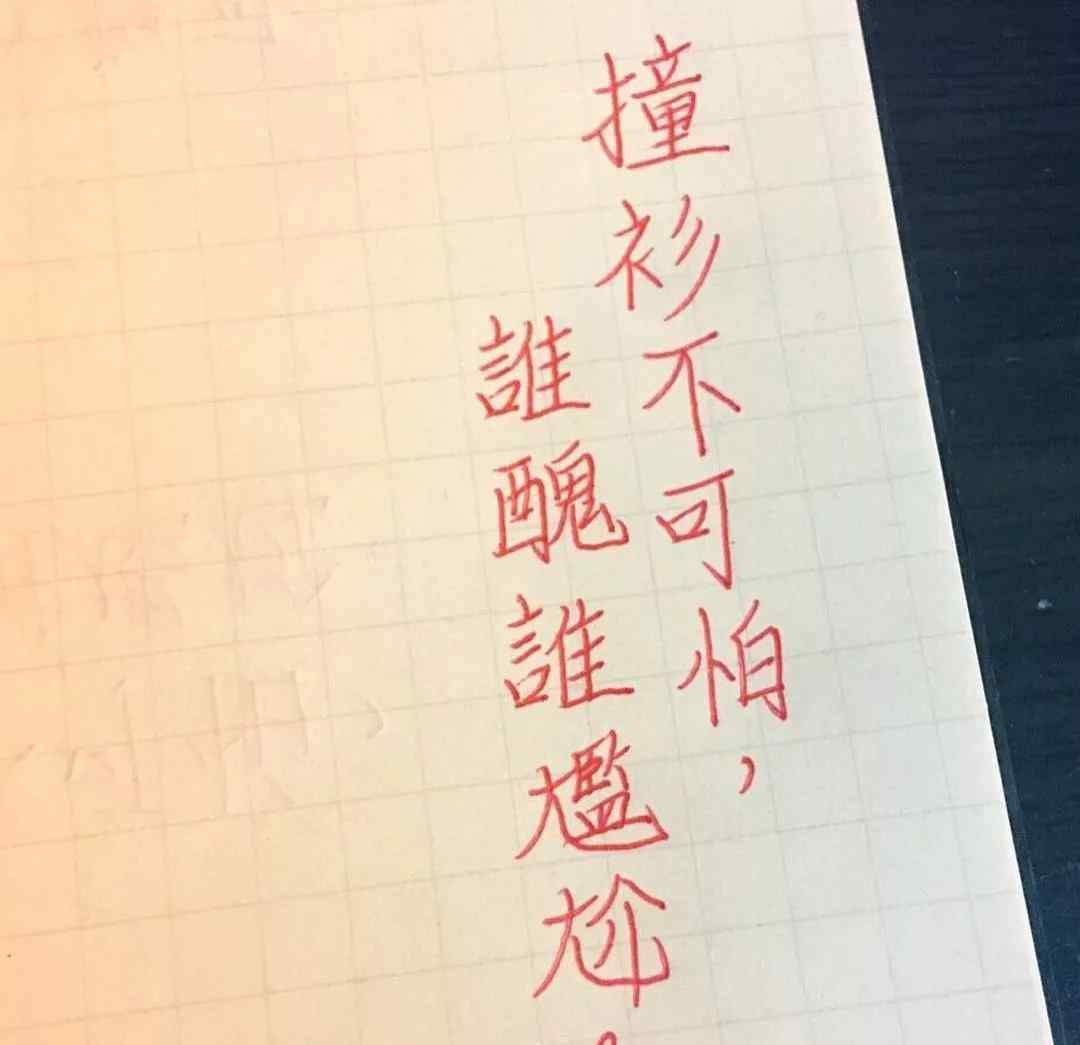 撞衫不可怕，
誰醜誰尷尬。